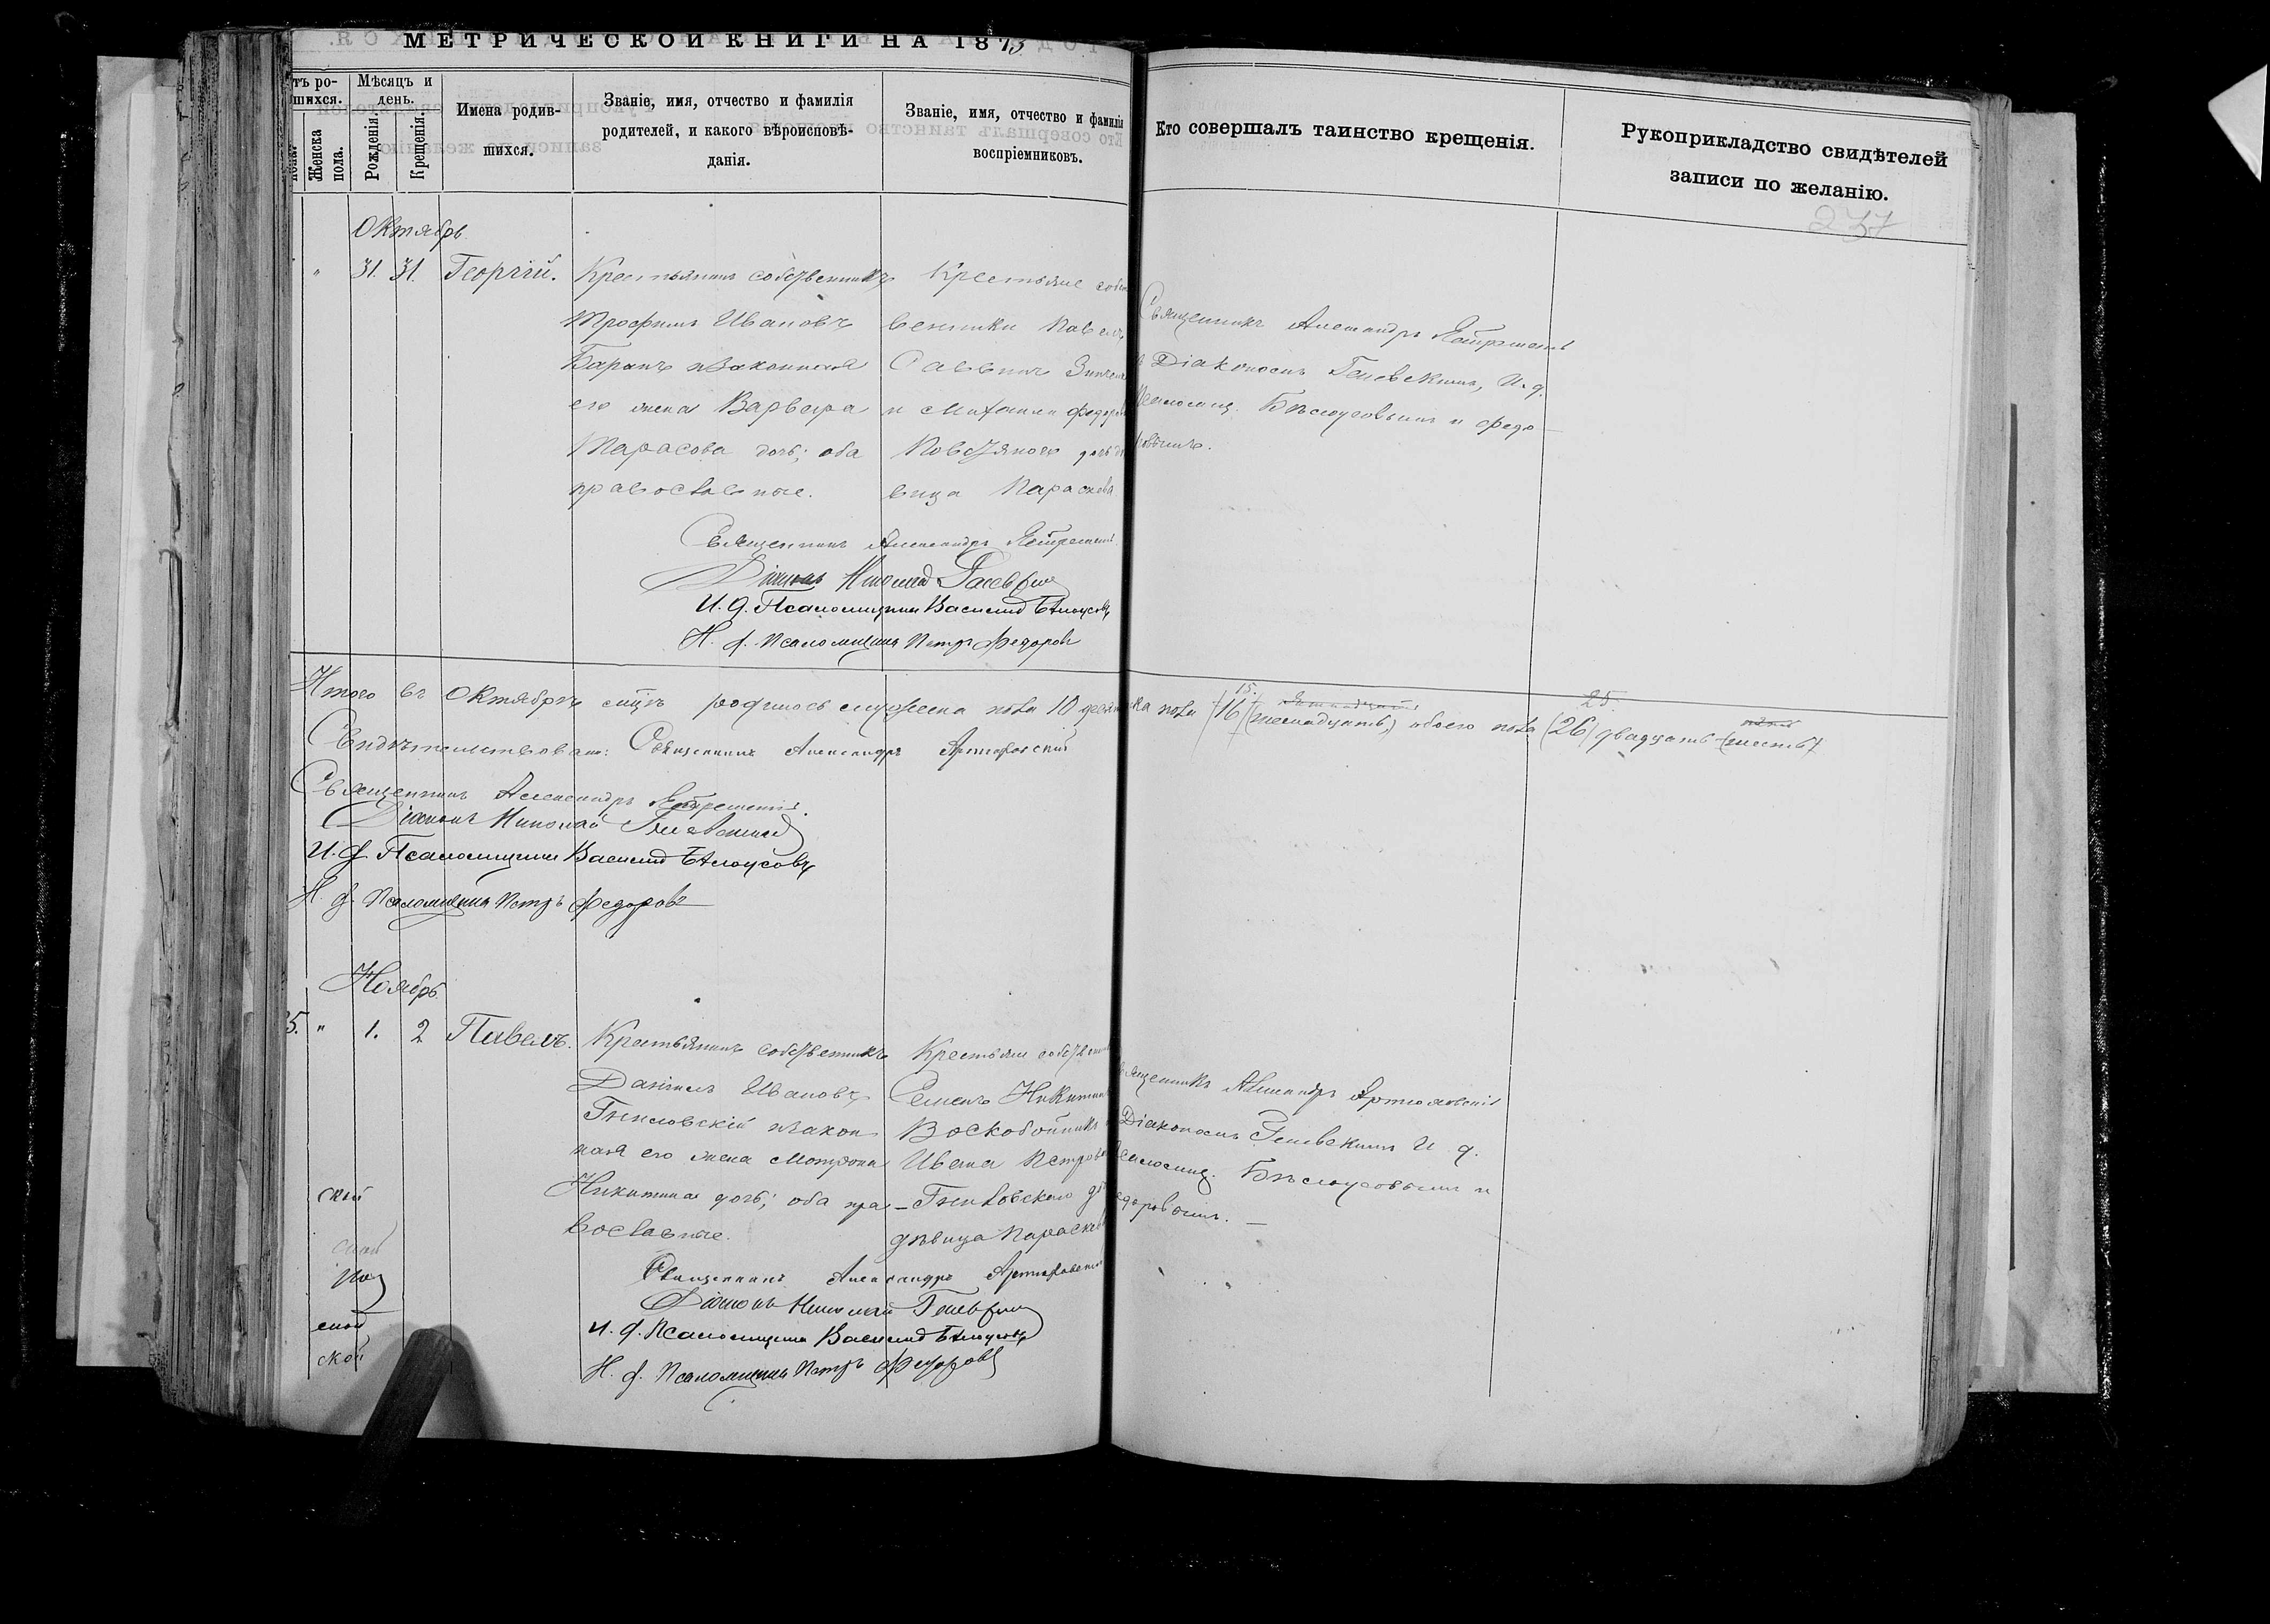 МЕТРИЧЕСКОЙ КНИГИ НА 1873
тъ ро-
шихся.
Женска
пола.
Мѣсяцъ и
день.
Рожденія.
Крещенія.
Имена родив-
шихся.
Званіе, имя, отчество и фамилія
родителей, и какого вѣроисповѣ-
данія.
Званіе, имя, отчество и фамилія
воспріемниковъ.
Кто совершалъ таинство крещенія.
Рукоприкладство свидѣтелей
записи по желанію.
237
Октябрь
" 31. 31. Георгій.
Крестьянинъ собственникъ
Трофимъ Ивановъ
Баранъ и законная
его жена Варвара
Тарасова дочь; оба
православные.
Крестьяне собст
венники Павелъ
Саввинъ
и Михаила Федоров
дочь дѣ
вица Параскева.
Священникъ Александръ
Діакономъ Гене­вскимъ, И. д.
Псаломщ. Бѣлоусовымъ и Федо
ровымъ.
Священникъ Александръ
Діаконъ Николай
И. д. Псаломщика Василий Бѣлоусовъ
И. д. Псаломщика Петръ Федоровъ
Итого въ Октябрѣ мцѣ родилось мужеска пола 10 женска пола (16) (шестнадцать) обоего пола (26) двадцать (шесть)
15. пятнадцать
25. пять
Свидѣтельствовалъ: Священникъ Александръ Артюховскій
Священникъ Александръ
Діаконъ Николай
И. д. Псаломщика Василий Бѣлоусовъ
И. д. Псаломщика Петръ Федоровъ
Ноябрь
5. " 1. 2 Павелъ.
Крестьянинъ собственникъ
Даніилъ Ивановъ
и закон
ная его жена Мотрона
Никитина дочь; оба пра
вославные.
Крестьяне собствен
Семенъ Никитинъ
Воскобойникъ
Ивана Петрова
дѣвица Параскев
Священникъ Александръ
Діакономъ И. д.
Псаломщ. Бѣлоусовымъ и
Федоровымъ.
ской
ской
ской
ской
Священникъ Александръ
Діаконъ Николай
И. д. Псаломщика Василий Бѣлоусовъ
И. д. Псаломщика Петръ Федоровъ